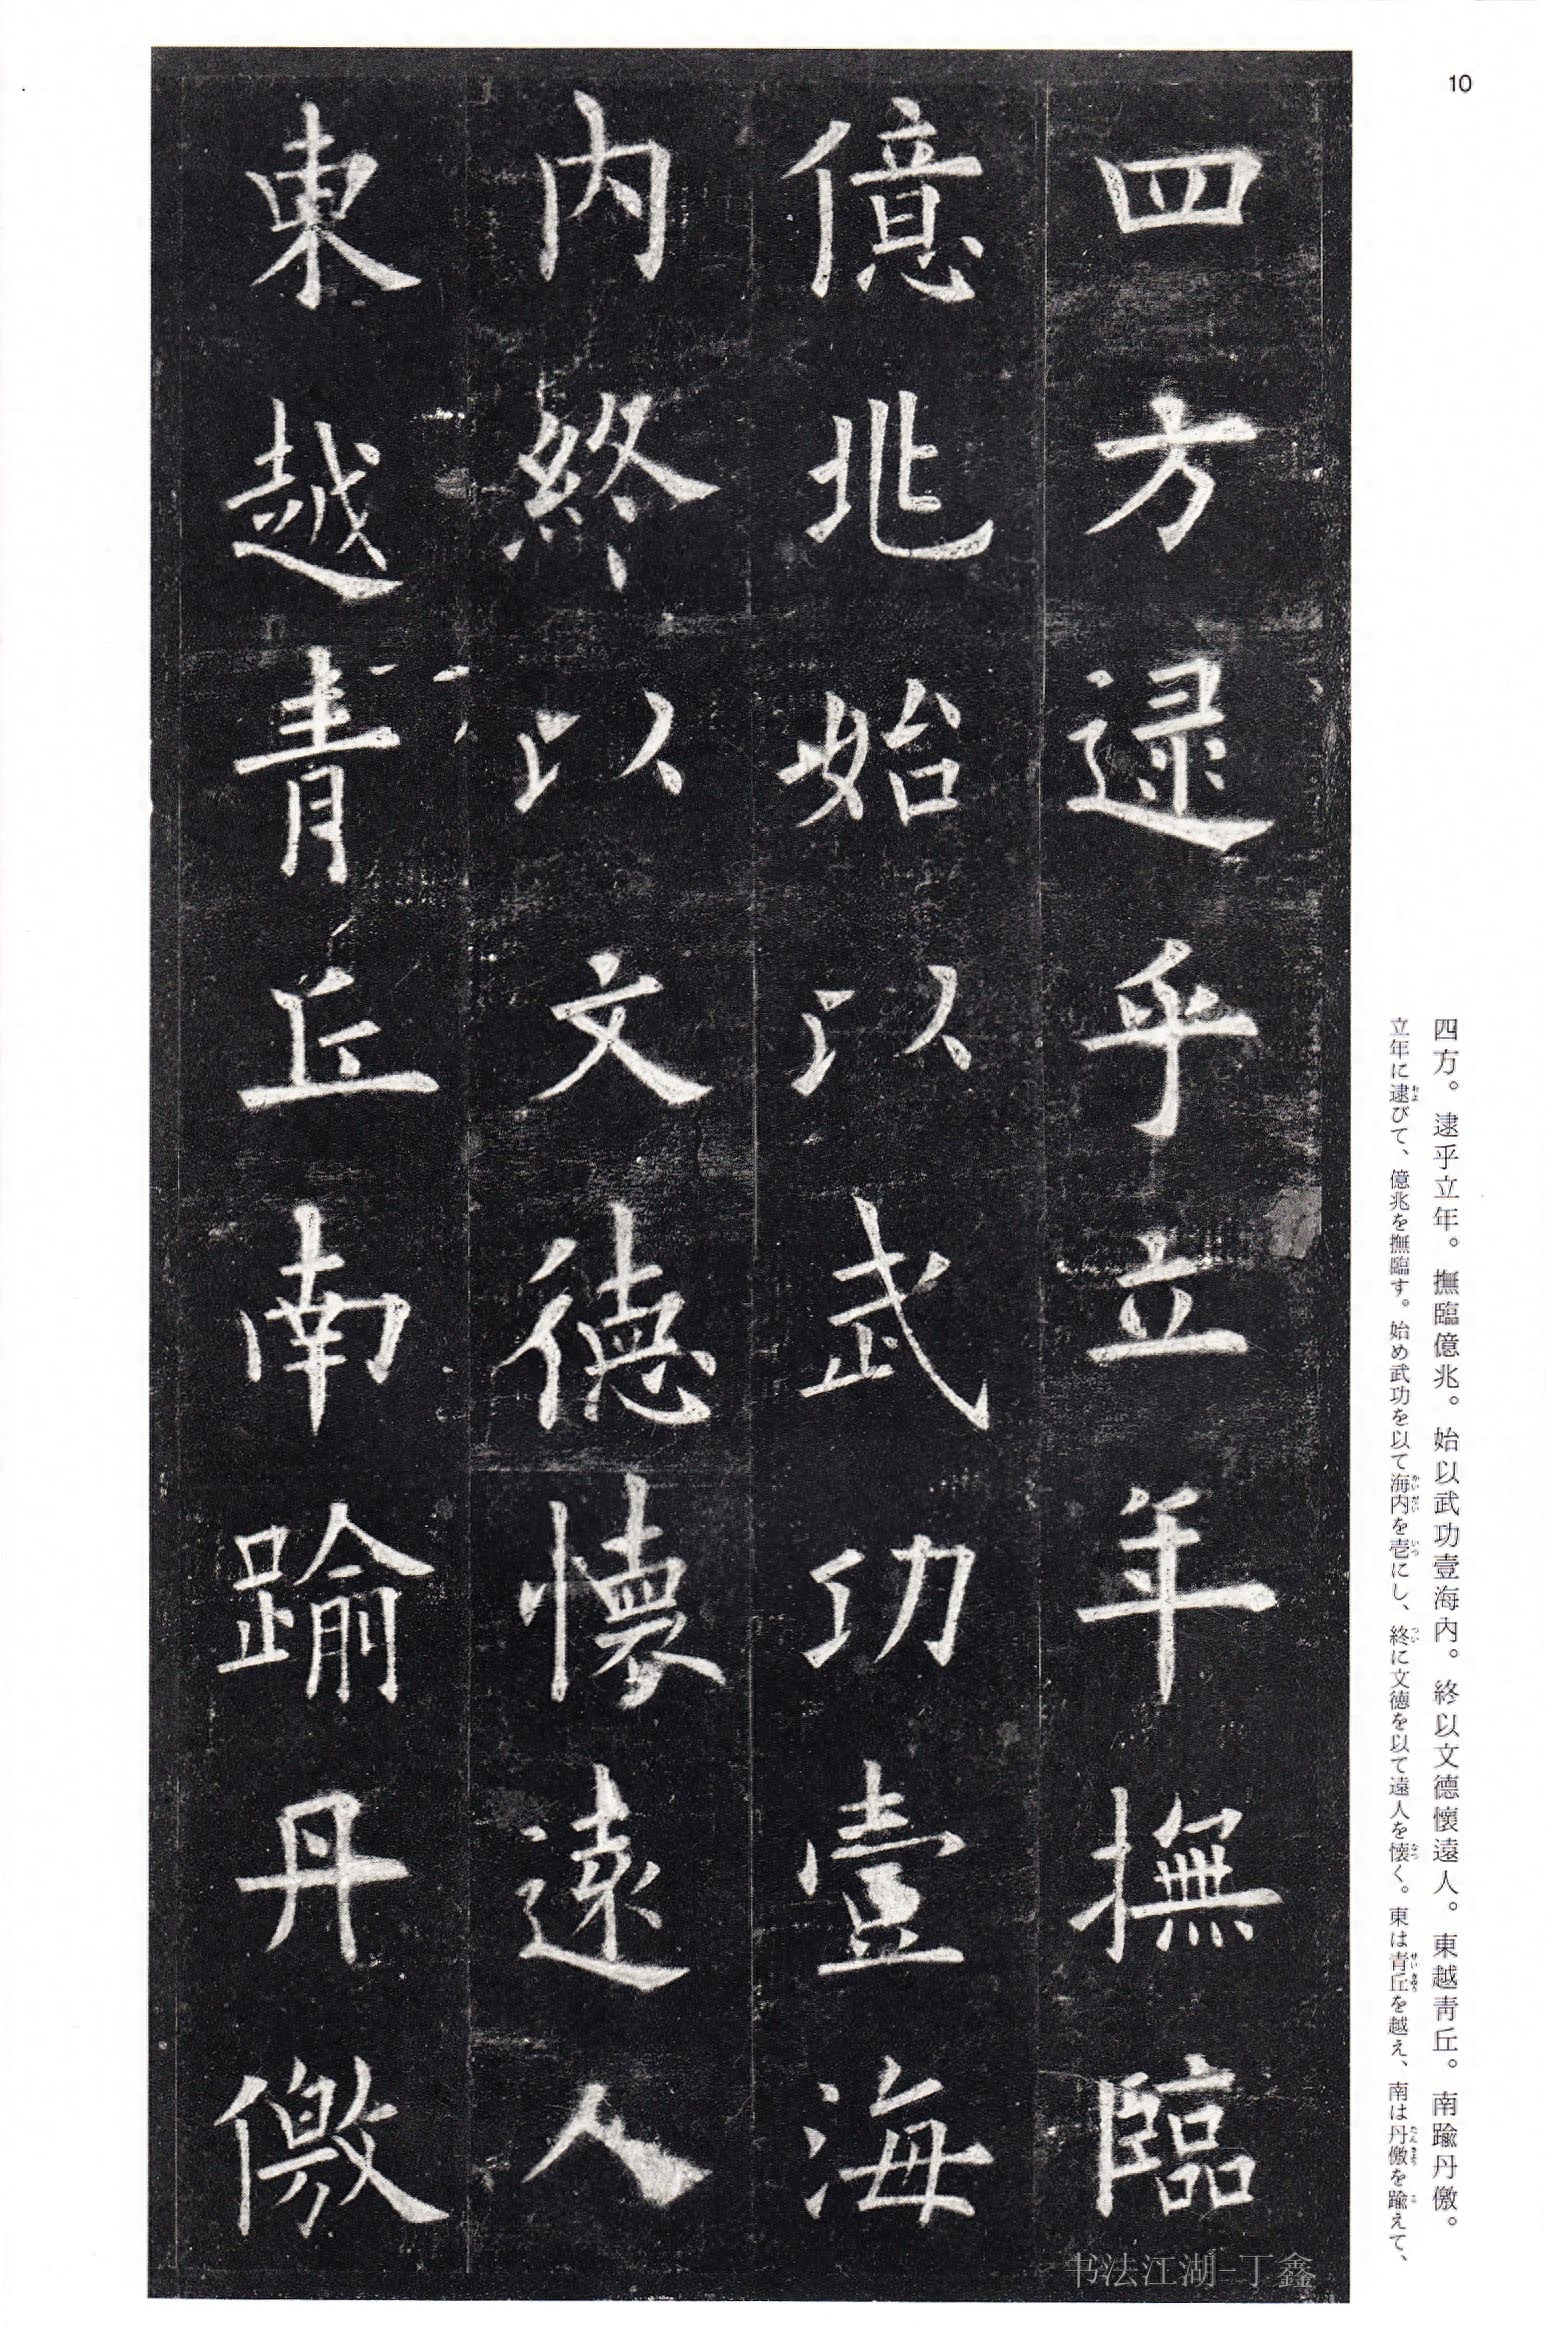 10
四方逯乎立年撫臨
億兆始以武功壹海
内終以文德懷遠人
東越青丘南踰丹儌
四方。逮乎立年。撫臨億兆。始以武功壹海内。終以文德懷遠人。東越青丘。南踰丹儌。
立年に逮びて、億兆を撫臨す。始め武功を以て海内を壱にし、終に文徳を以て遠人を懐く。東は青丘を越え、南は丹儌を踰えて、
书法江湖-丁鑫